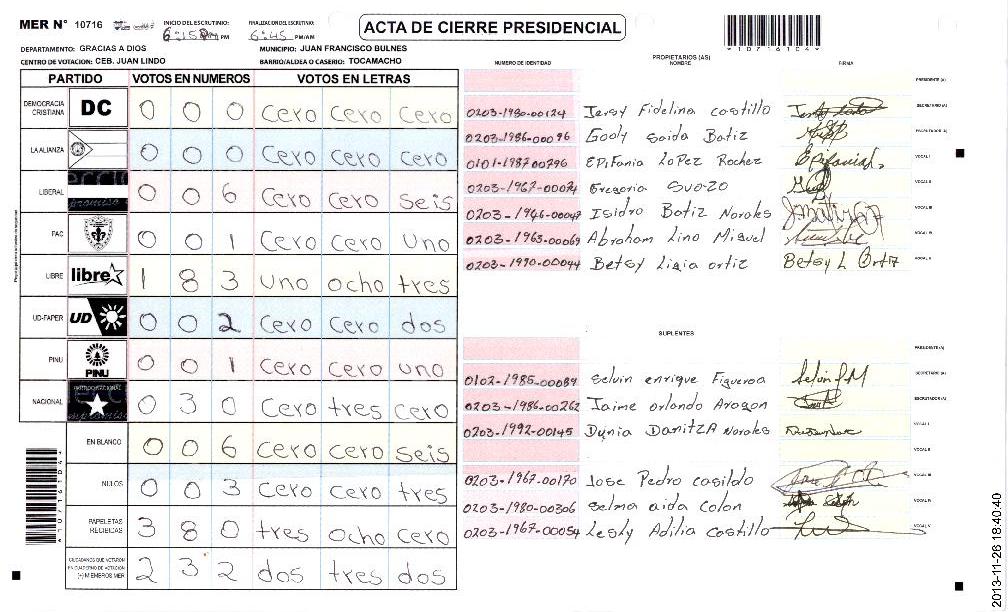 MER N° 10716
INICIO DEL ESCRUTINIO: 6:15 PM
FINALIZACION DEL ESCRUTINIO: 6:45 PM/AM
ACTA DE CIERRE PRESIDENCIAL
*10716104*
DEPARTAMENTO: GRACIAS A DIOS
MUNICIPIO: JUAN FRANCISCO BULNES
CENTRO DE VOTACION: CEB. JUAN LINDO
BARRIO/ALDEA O CASERIO: TOCAMACHO
PARTIDO VOTOS EN NUMEROS VOTOS EN LETRAS
DEMOCRACIA CRISTIANA DC 0 0 0 Cero Cero Cero
LA ALIANZA 0 0 0 Cero Cero Cero
LIBERAL 0 0 6 Cero Cero Seis
FAC 0 0 1 Cero Cero Uno
LIBRE libre 1 8 3 Uno Ocho tres
UD-FAPER UD 0 0 2 Cero Cero dos
PINU PINU 0 0 1 Cero Cero Uno
NACIONAL 0 3 0 Cero tres Cero
EN BLANCO 0 0 6 Cero Cero Seis
NULOS 0 0 3 Cero Cero tres
PAPELETAS RECIBIDAS 3 8 0 tres Ocho Cero
CIUDADANOS QUE VOTARON EN CUADERNO DE VOTACION (+) MIEMBROS MER 2 3 2 dos tres dos
NUMERO DE IDENTIDAD
PROPIETARIOS (AS)
NOMBRE
FIRMA
PRESIDENTE (A)
0203-1980-00124 Jersy Fidelina Castillo SECRETARIO (A)
0203-1986-00096 Gooly Saida Batiz ESCRUTADOR (A)
0101-1987 00796 EPiFania LoPez Rochez VOCAL I
0203-1967-00024 Gregoria Suazo VOCAL II
0203-1946-00047 Isidro Batiz Norales VOCAL III
0203-1963-00069 Abraham Lino Miguel VOCAL IV
0203-1990-00044 Betsy Ligia ortiz Betsy L Ortiz VOCAL V
SUPLENTES
PRESIDENTE (A)
0102-1985-00089 Selvin enrique Figueroa SECRETARIO (A)
0203-1986-00262 Jaime orlando Aragon ESCRUTADOR (A)
0203-1992-00145 Dunia DanitzA Norales VOCAL I
VOCAL II
0203-1967-00170 Jose Pedro casildo VOCAL III
0203-1980-00306 Selma aida Colon VOCAL IV
0203-1967-00054 Lesly Adilia Castillo VOCAL V
*10716104*
2013-11-26 18:40:40